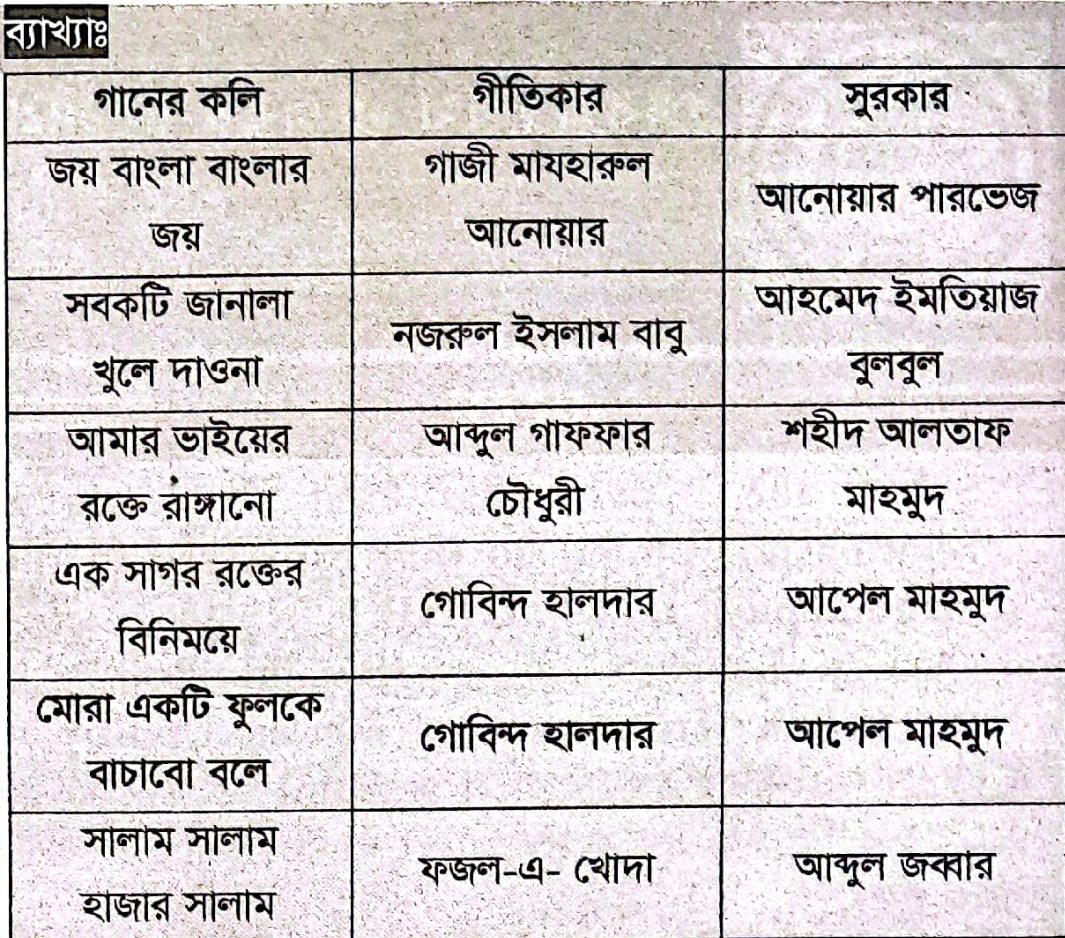 ব্যাখ্যাঃ
গানের কলি গীতিকার সুরকার
জয় বাংলা বাংলার জয় গাজী মাযহারুল আনোয়ার আনোয়ার পারভেজ
সবকটি জানালা খুলে দাওনা নজরুল ইসলাম বাবু আহমেদ ইমতিয়াজ বুলবুল
আমার ভাইয়ের রক্তে রাঙ্গানো আব্দুল গাফফার চৌধুরী শহীদ আলতাফ মাহমুদ
এক সাগর রক্তের বিনিময়ে গোবিন্দ হালদার আপেল মাহমুদ
মোরা একটি ফুলকে বাচাবো বলে গোবিন্দ হালদার আপেল মাহমুদ
সালাম সালাম হাজার সালাম ফজল-এ- খোদা আব্দুল জব্বার